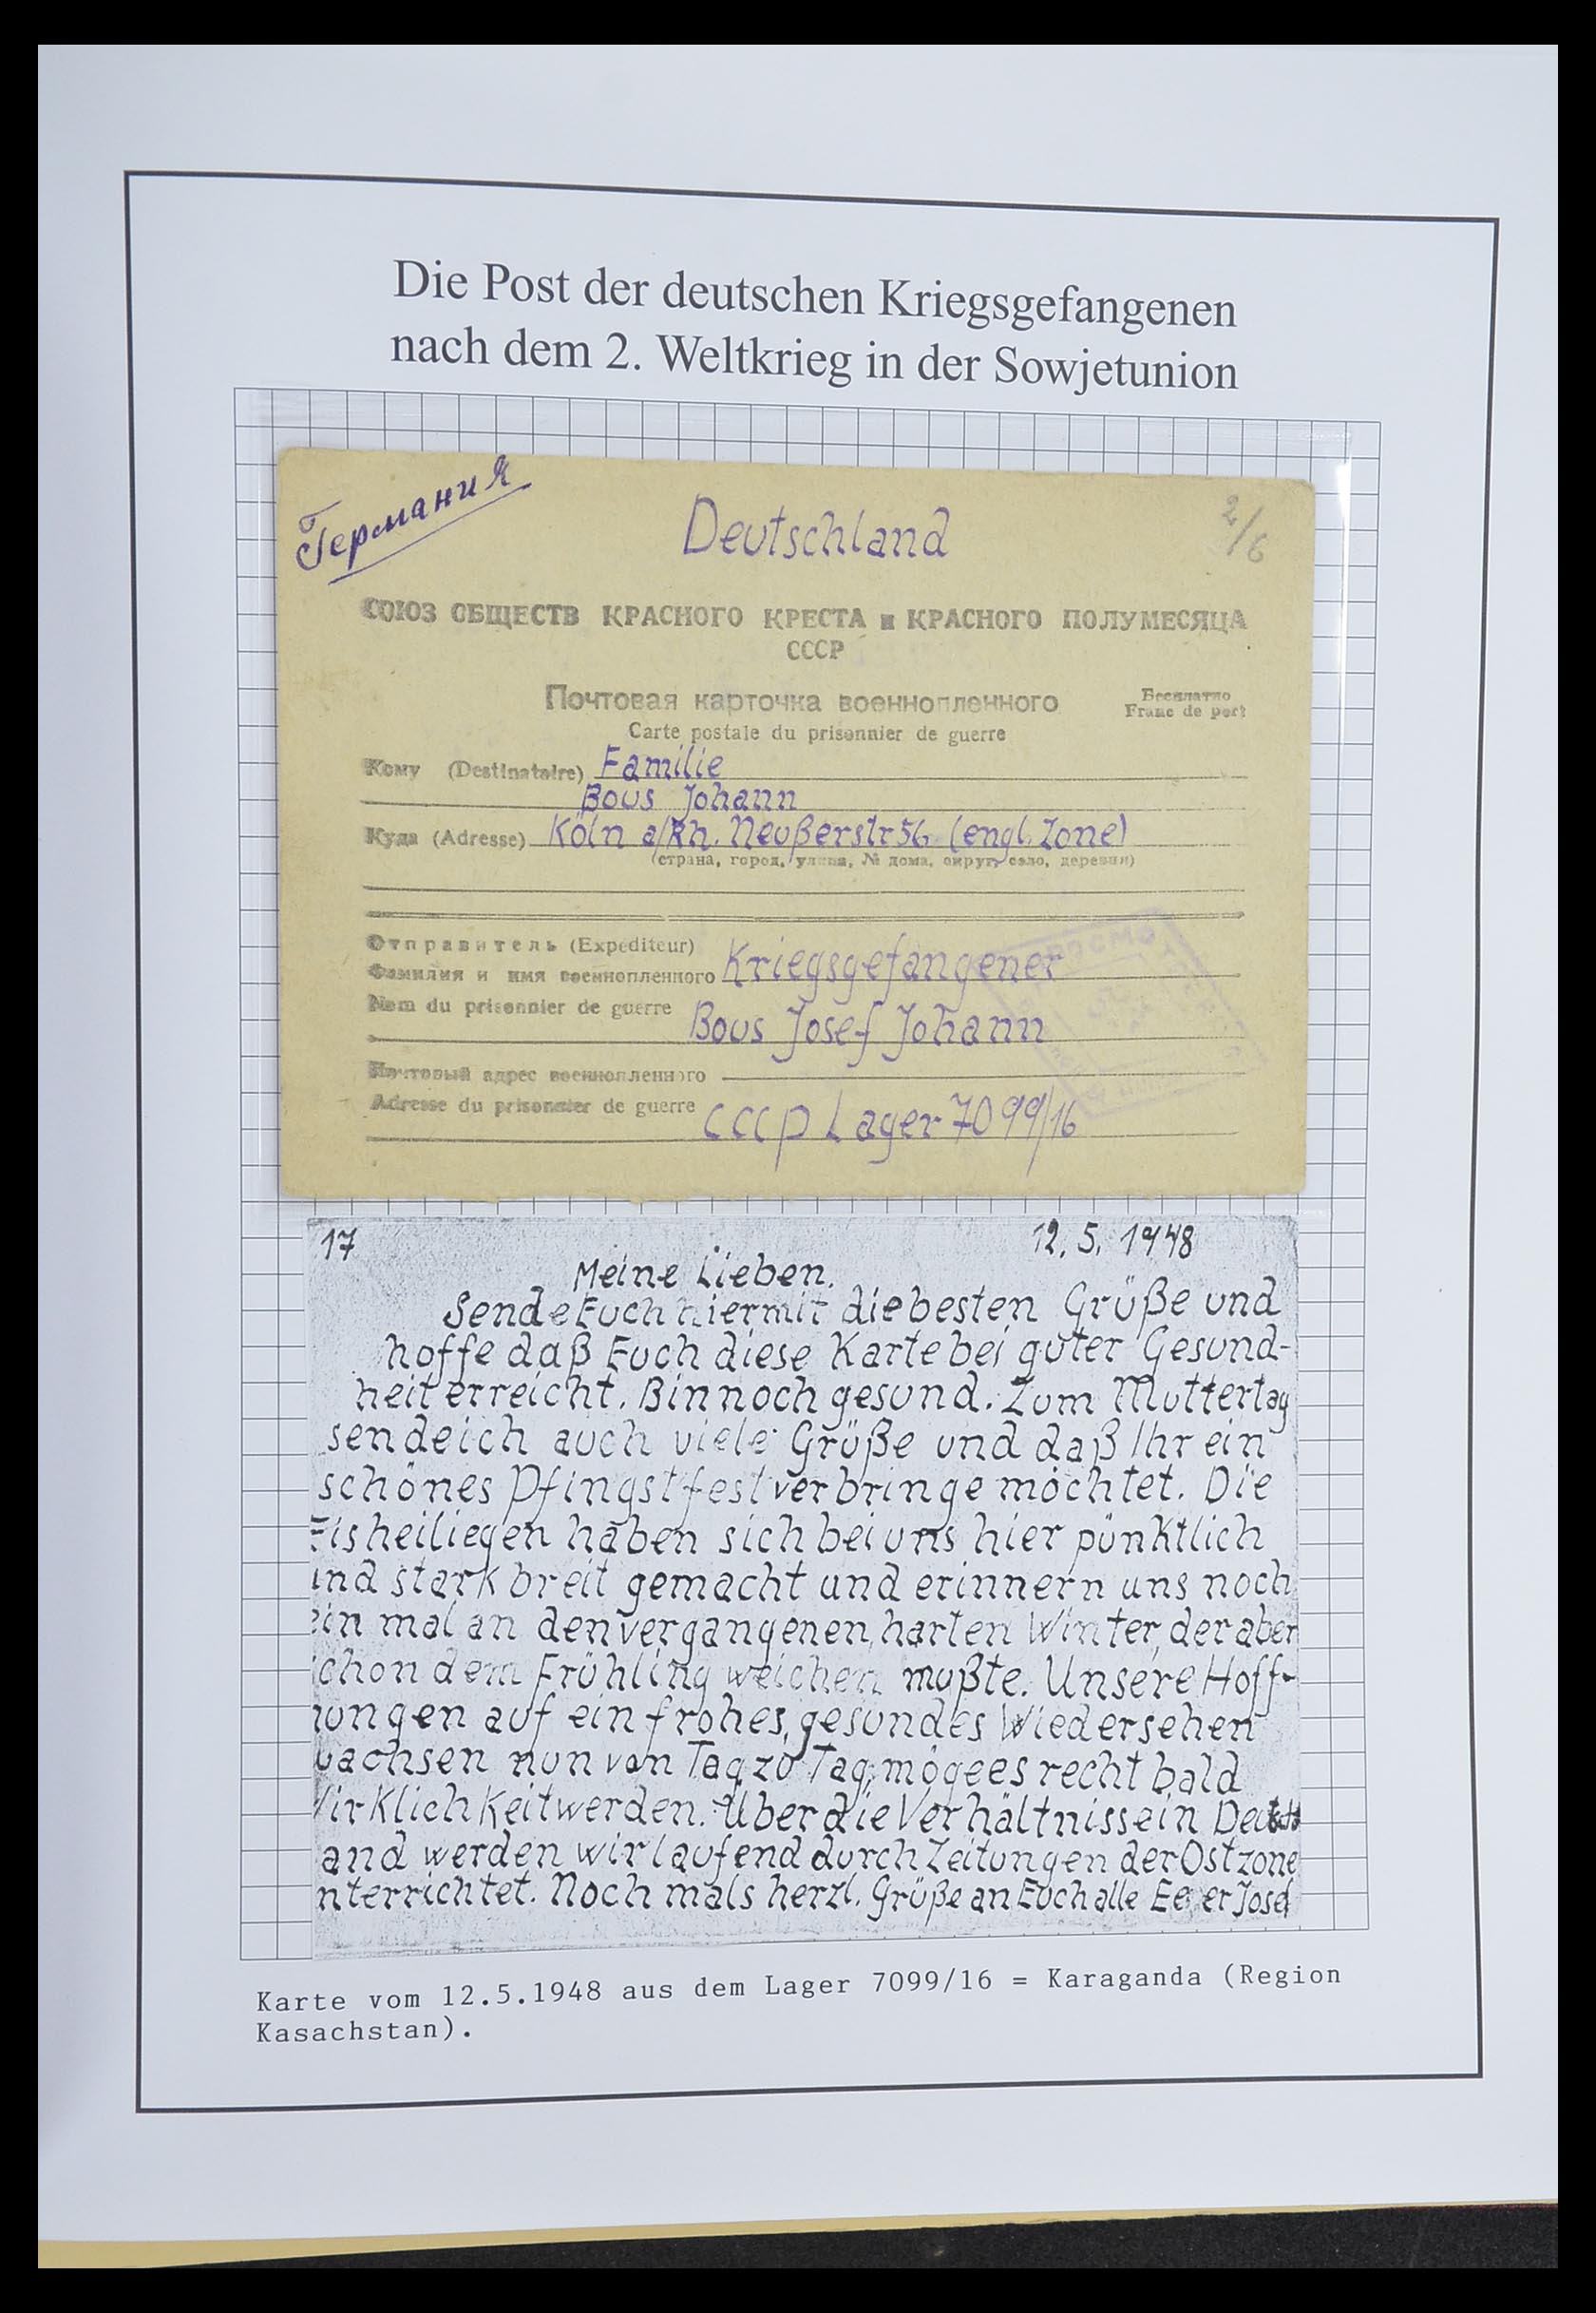 Die Post der deutschen Kriegsgefangenen
nach dem 2. Weltkrieg in der Sowjetunion
Германия
Deutschland
2/6
СОЮЗ ОБЩЕСТВ КРАСНОГО КРЕСТА и КРАСНОГО ПОЛУМЕСЯЦА
СССР
Почтовая карточка военнопленного
Бесплатно
Franc de port
Carte postale du prisonnier de guerre
Кому (Destinataire) Familie
Bous Johann
Куда (Adresse) Köln a/Rh. Neußerstr 56 (engl. Zone)
(страна, город, улица, № дома, округ, село, деревня)
Отправитель (Expediteur)
Фамилия и имя военнопленного Kriegsgefangener
Nom du prisonnier de guerre Bous Josef Johann
Почтовый адрес военнопленного
Adresse du prisonnier de guerre CCCP Lager 7099/16
17 12. 5. 1948
Meine Lieben.
Sende Euch hiermit die besten Grüße und
hoffe daß Euch diese Karte bei guter Gesund-
heit erreicht. Bin noch gesund. Zum Muttertag
sende ich auch viele Grüße und daß Ihr ein
schönes Pfingstfest verbringe möchtet. Die
Eisheiliegen haben sich bei uns hier pünktlich
und stark breit gemacht und erinnern uns noch
ein mal an den vergangenen, harten Winter, der aber
schon dem Frühling weichen mußte. Unsere Hoff-
nungen auf ein frohes, gesundes Wiedersehen
wachsen nun von Tag zu Tag, möge es recht bald
Wirklichkeit werden. Über die Verhältnisse in
and werden wir laufend durch Zeitungen der Ostzone
nterrichtet. Noch mals herzl. Grüße an Euch alle Josef
Karte vom 12.5.1948 aus dem Lager 7099/16 = Karaganda (Region
Kasachstan).